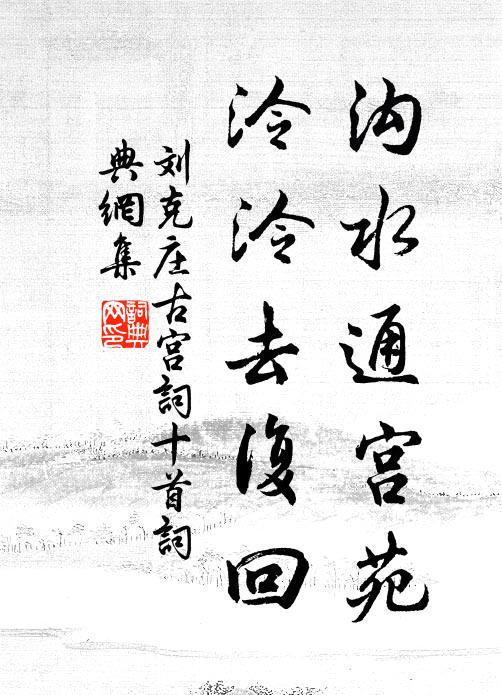 沟水通宫苑
泠泠去復回
刘克庄古宫詞十首詞
典網集
詞典
网印